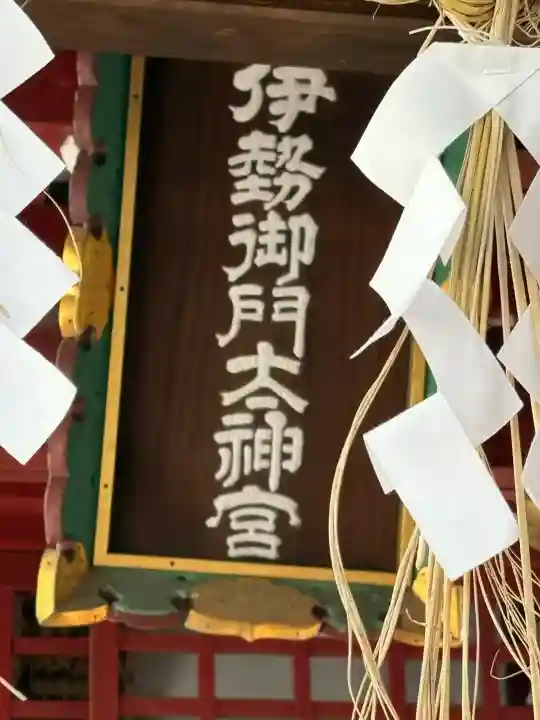 伊勢御門太神宮